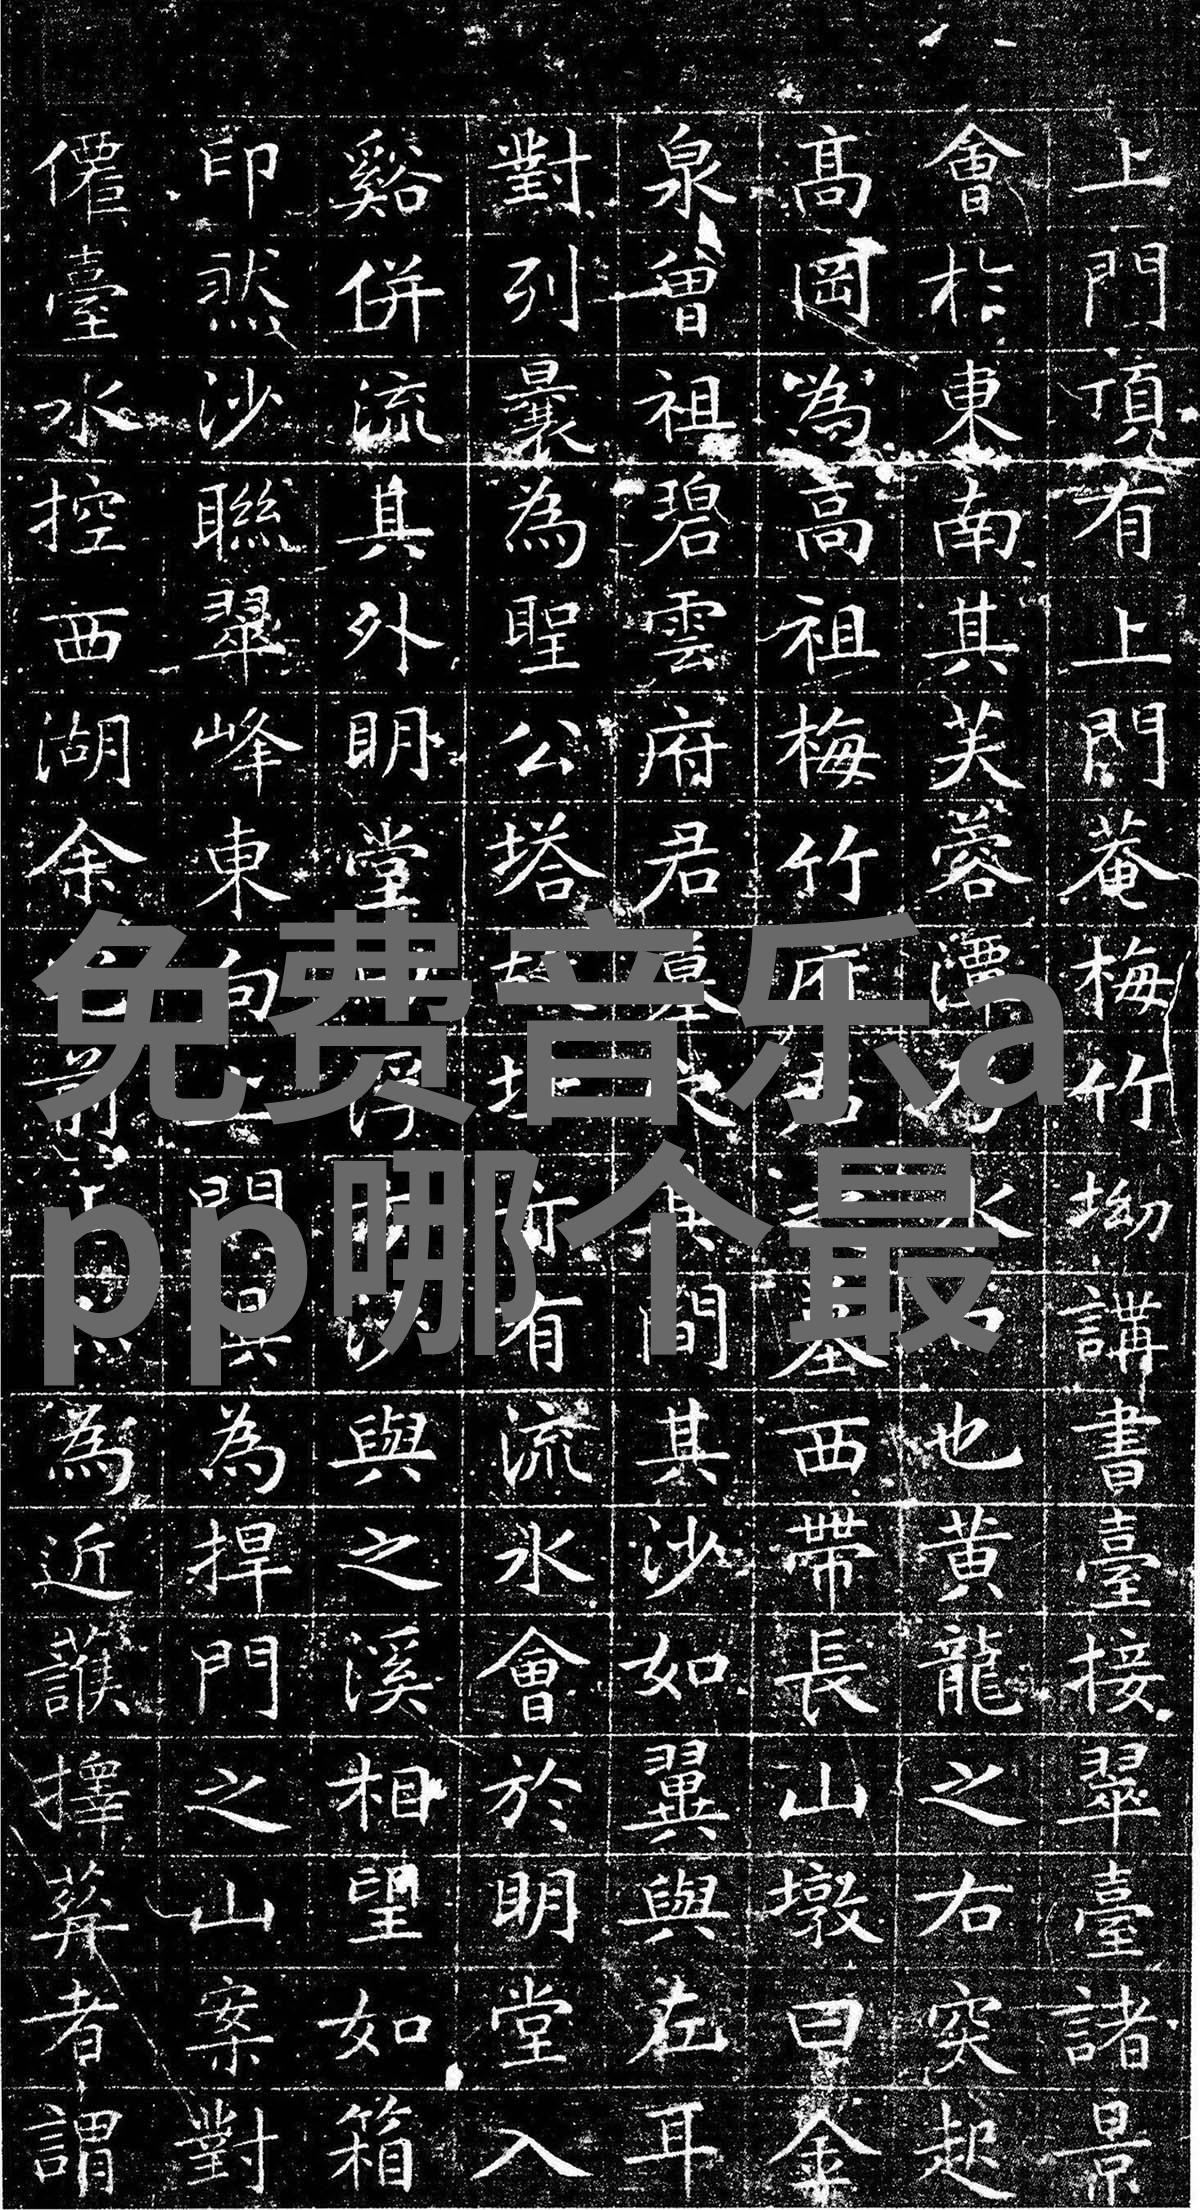 上門頂有上門菴梅竹坳講書臺接翠臺諸景
會於東南其芙蓉潭水口也黃龍之右突起
高岡為高祖梅竹府君墓西帶長山墩曰金
泉曾祖碧雲府君墓其間其沙如翼與左耳
對列曩為聖公塔址有流水會於明堂入
谿併流其外明堂浮沙與之溪相望如箱
印然沙聯翠峰東向為捍門之山案對
僊臺水控西湖余前為近護擇葬者謂
免费音乐a
pp哪个最